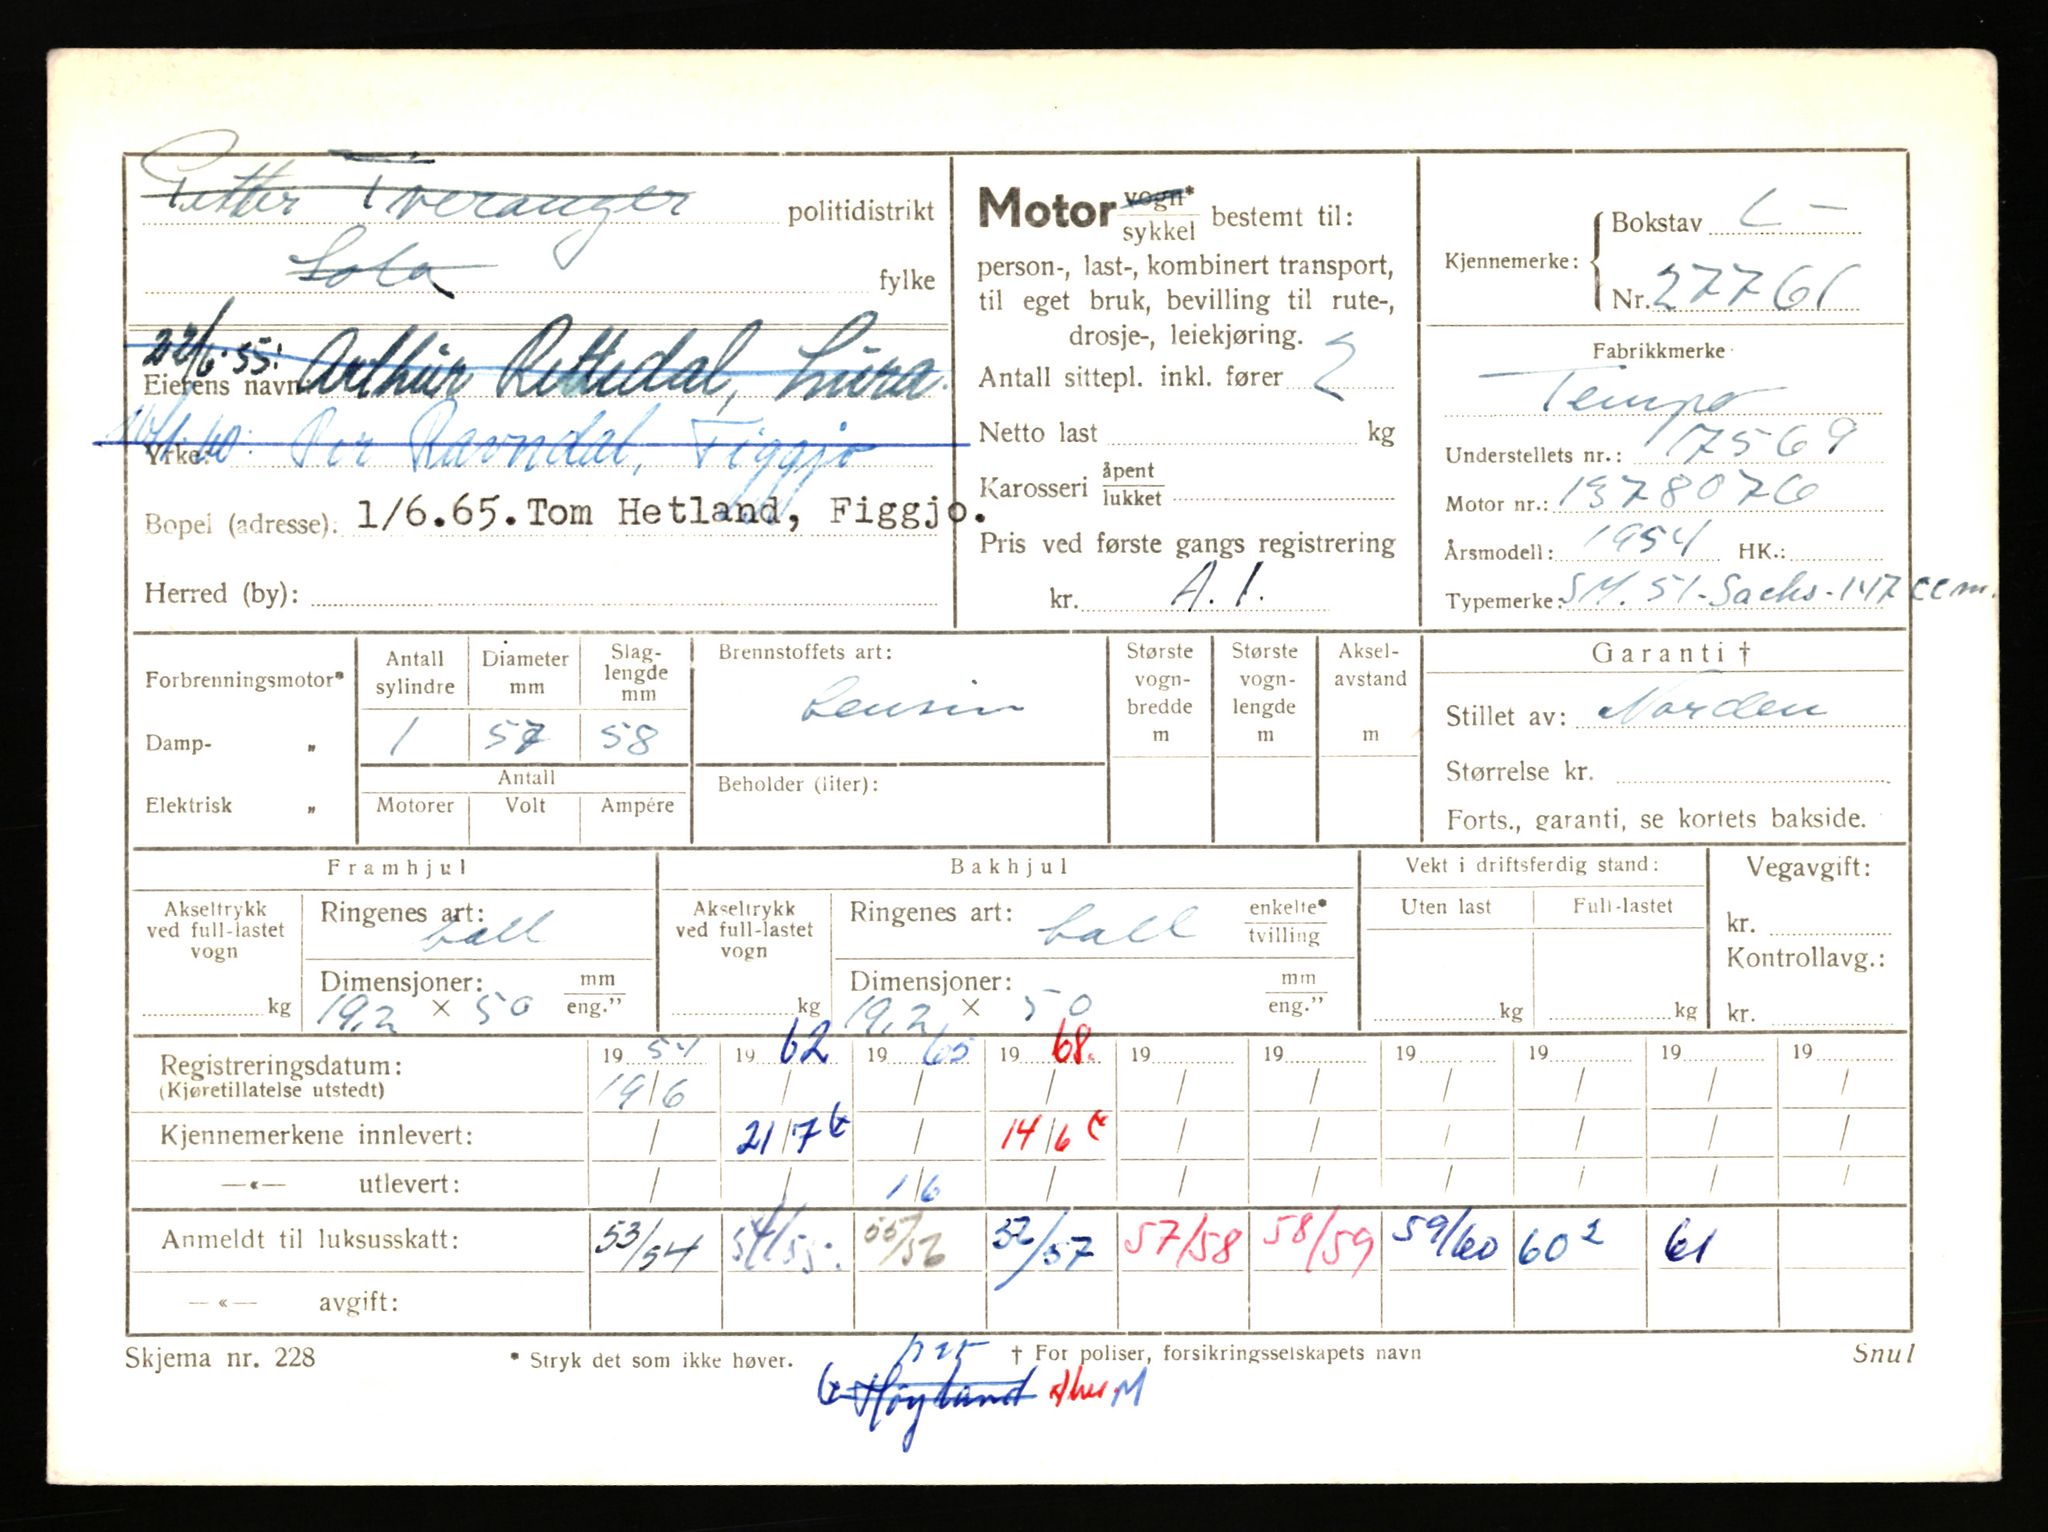 Petter Tveranger politidistrikt
Sola fylke
22/6-55: Eierens navn: Arthur Rettedal, Lura.
Yrke: Per Ravndal, Figgjo
Bopel (adresse): 1/6.65. Tom Hetland, Figgjo.
Herred (by):
Motor vogn*/sykkel bestemt til:
person-, last-, kombinert transport,
til eget bruk, bevilling til rute-,
drosje-, leiekjøring.
Antall sittepl. inkl. fører 2
Netto last kg
Karosseri åpent/lukket
Pris ved første gangs registrering
kr. A. I.
Kjennemerke: Bokstav L-
Nr. 27761
Fabrikkmerke
Tempo
Understellets nr.: 17569
Motor nr.: 1378076
Årsmodell: 1954 HK.:
Typemerke: SM. 51-Sachs-147 ccm.
Forbrenningsmotor*
Damp- „
Elektrisk „
Antall sylindre Diameter mm Slag-lengde mm
1 57 58
Antall
Motorer Volt Ampére
Brennstoffets art:
bensin
Beholder (liter):
Største vogn-bredde m
Største vogn-lengde m
Aksel-avstand m
Garanti †
Stillet av: Norden
Størrelse kr.
Forts., garanti, se kortets bakside.
Framhjul
Akseltrykk ved full-lastet vogn kg
Ringenes art: ball
Dimensjoner: mm/eng."
19,2 × 50
Bakhjul
Akseltrykk ved full-lastet vogn kg
Ringenes art: ball enkelte*/tvilling
Dimensjoner: mm/eng."
19,2 × 50
Vekt i driftsferdig stand:
Uten last Full-lastet
kg kg
Vegavgift:
kr.
Kontrollavg.:
kr.
Registreringsdatum: 1954 1962 1965 1968. 19 19 19 19 19 19
(Kjøretillatelse utstedt) 19/6 / / / / / / / / /
Kjennemerkene innlevert: / 21/7 / 14/6 / / / / / /
—«— utlevert: / / 1/6 / / / / / / /
Anmeldt til luksusskatt: 53/54 54/55: 55/56 56/57 57/58 58/59 59/60 60² 61
—«— avgift:
Skjema nr. 228 * Stryk det som ikke høver. † For poliser, forsikringsselskapets navn Snul
Høyland